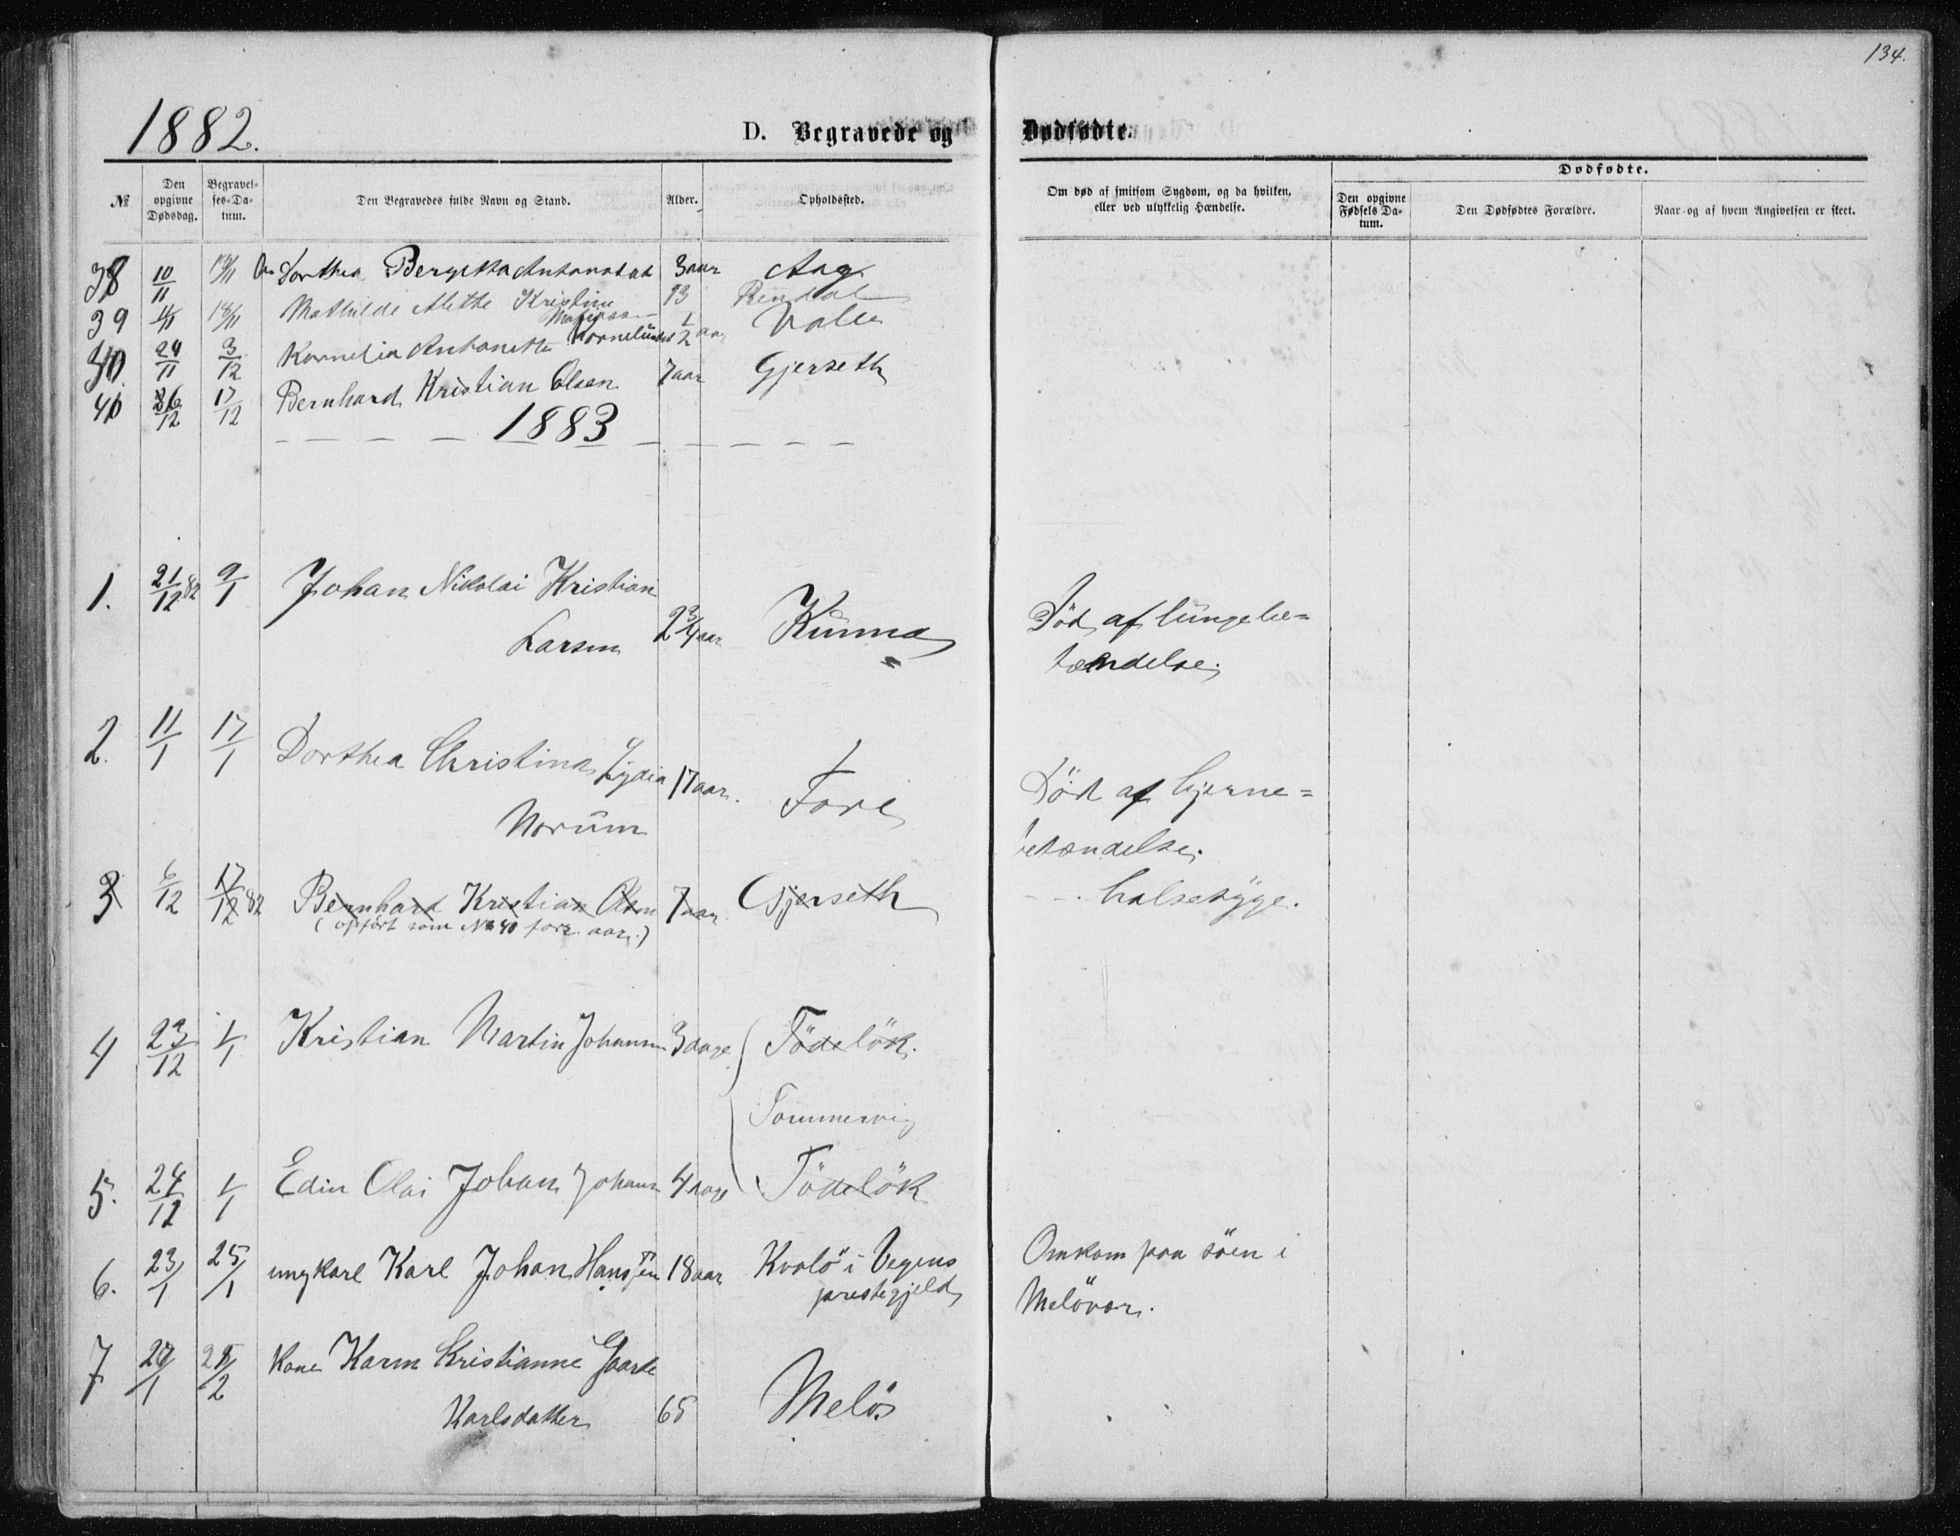 134.
1882.
D. Begravede og Dødfødte.
№
Den opgivne Dødsdag.
Begravelses-Datum.
Den Begravedes fulde Navn og Stand.
Alder.
Opholdssted.
Om død af smitsom Sygdom, og da hvilken, eller ved ulykkelig Hændelse.
Dødfødte.
Den opgivne Fødsels Datum.
Den Dødfødtes Forældre.
Naar og af hvem Angivelsen er skeet.
38 10/11 Dorthea Bergitta Antonsdat 3 aar Aag
39 Mathilde Mette Kristine 13 Rendal
40 24/11 3/12 Kornelia Antonette Korneliusd 1/2 aar Valle
41 6/12 17/12 Bernhard Kristian Olsen 7 aar Gjerseth
1883
1. 21/12 82 9/1 Johan Nikolai Kristian
Larsen 2 3/4 aar Kunna Död af lungebe=
tændelse.
2. 11/1 17/1 Dorthea Christina Lydia
Norum 17 aar. Fore Död af hjerne=
betændelse.
3 6/12 17/12 82 Bernhard Kristian Olsen 7 aar Gjerseth - - halsesyge.
(opfört som No 40 forr. aar.)
4 23/12 1/1 Kristian Martin Johansen 3 dage Tödelök.
Tommervig
5. 24/12 1/1 Edin Olai Johan Johans 4 dage Tödelök
6. 23/1 25/1 ungkarl Karl Johan Hansen 18 aar Kvalö i Vegens
prestegjeld Omkom paa söen i
Melövær.
7 29/1 2 Kone Karen Kristianne Gaarde
Karlsdatter 65 Melö